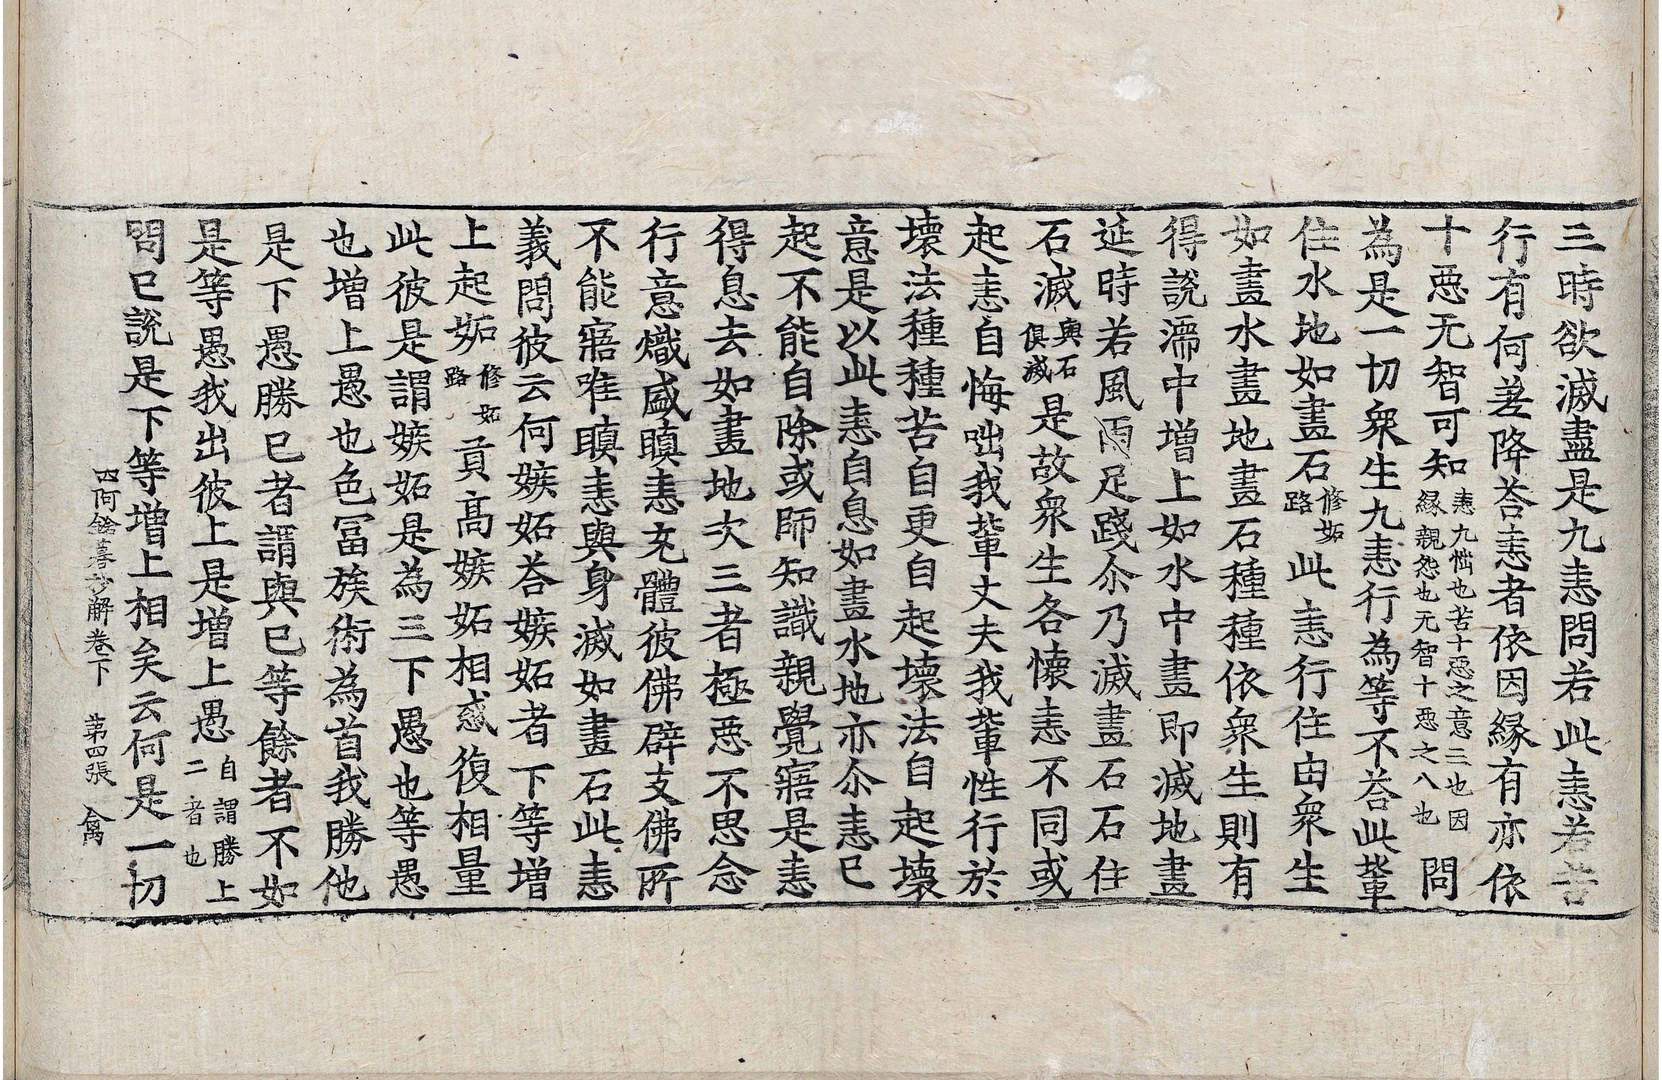 三時欲滅盡是九恚問若此恚若苦
行有何差降荅恚者依因縁有亦依
十惡无智可知恚九惱也苦十惡之意三也因縁親怨也无智十惡之八也問
為是一切衆生九恚行為等不荅此輩
住水地如畫石修妬路此恚行住由衆生
如畫水畫地畫石種種依衆生則有
得説濡中增上如水中畫即滅地畫
延時若風雨足踐尒乃滅畫石石住
石滅與石俱滅是故衆生各懐恚不同或
起恚自悔咄我輩丈夫我輩性行於
壊法種種苦自更自起壊法自起壊
意是以此恚自息如畫水地亦尒恚已
起不能自除或師知識親覺寤是恚
得息去如畫地次三者極惡不思念
行意熾盛瞋恚充體彼佛辟支佛所
不能寤唯瞋恚與身滅如畫石此恚
義問彼云何嫉妬荅嫉妬者下等增
上起妬修妬路貢髙嫉妬相惑復相量
此彼是謂嫉妬是為三下愚也等愚
也增上愚也色富族術為首我勝他
是下愚勝已者謂與已等餘者不如
是等愚我出彼上是增上愚自謂勝上二者也
問已説是下等增上相矣云何是一切
四阿鋡暮抄解卷下　第四張　禽